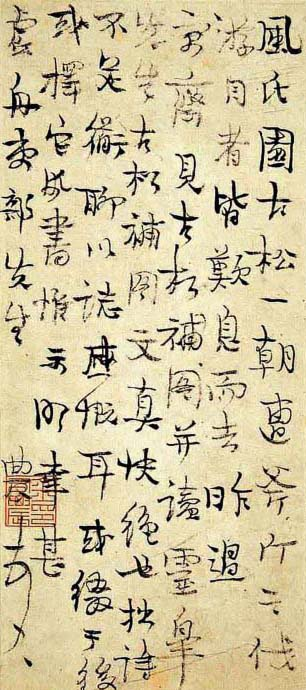 風氏園古松一朝遭斧斤之伐
游目者皆歎息而去昨過
齋見古松補圖并讀靈皋
先生古松補圖文真快絕也拙詩
不足 聊以誌感慨耳或綴于後
或擇它 書惟示明 幸甚
虛舟吏部先生
農